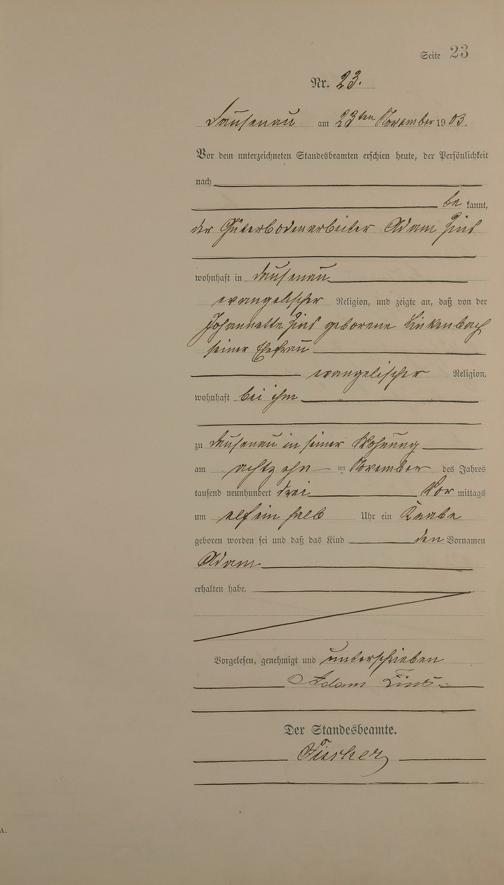 Seite 23
Nr. 23.
Dausenau am 23ten November 1903.
Vor dem unterzeichneten Standesbeamten erschien heute, der Persönlichkeit
nach
be kannt,
der Güterbodenarbeiter Adam
wohnhaft in Dausenau
evangelischer Religion, und zeigte an, daß von der
geborene Linkenbach
seiner Ehefrau
evangelischer Religion,
wohnhaft bei ihm
zu Dausenau in seiner Wohnung
am achtzehn November des Jahres
tausend neunhundert drei Vor mittags
um elf ein halb Uhr ein Knabe
geboren worden sei und daß das Kind den Vornamen
Adam
erhalten habe.
Vorgelesen, genehmigt und unterschrieben
Adam
Der Standesbeamte.
Fischer
A.